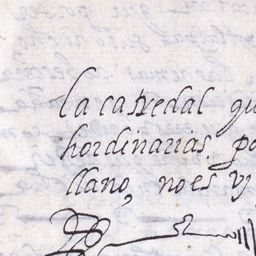 la catredal qu
hordinarias po
llano, no es vj